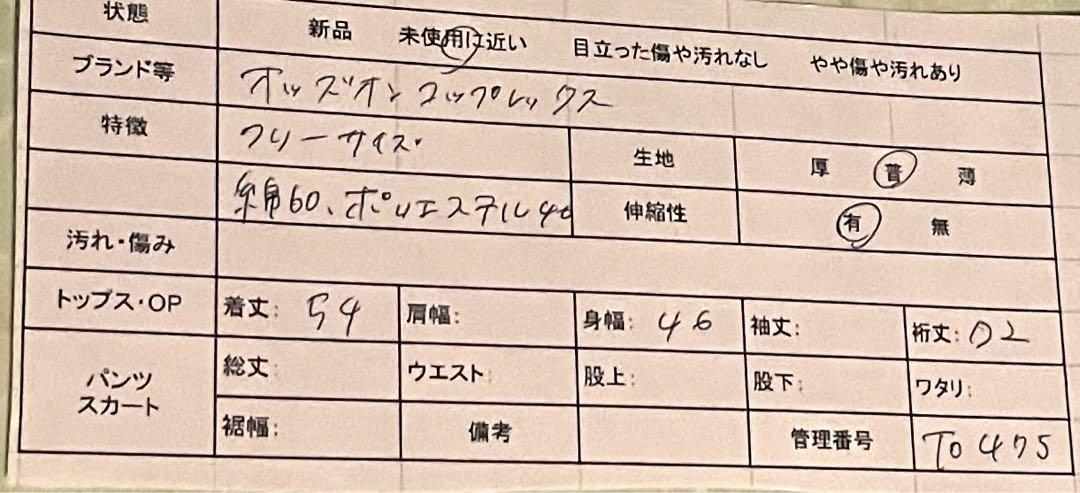 状態 新品 未使用に近い 目立った傷や汚れなし やや傷や汚れあり
ブランド等 オッズオンコップレックス
特徴 フリーサイズ 生地 厚 普 薄
綿60、ポリエステル40 伸縮性 有 無
汚れ・傷み
トップス・OP 着丈: 54 肩幅: 身幅: 46 袖丈: 裄丈: 72
パンツ スカート 総丈: ウエスト: 股上: 股下: ワタリ:
裾幅: 備考 管理番号 To475